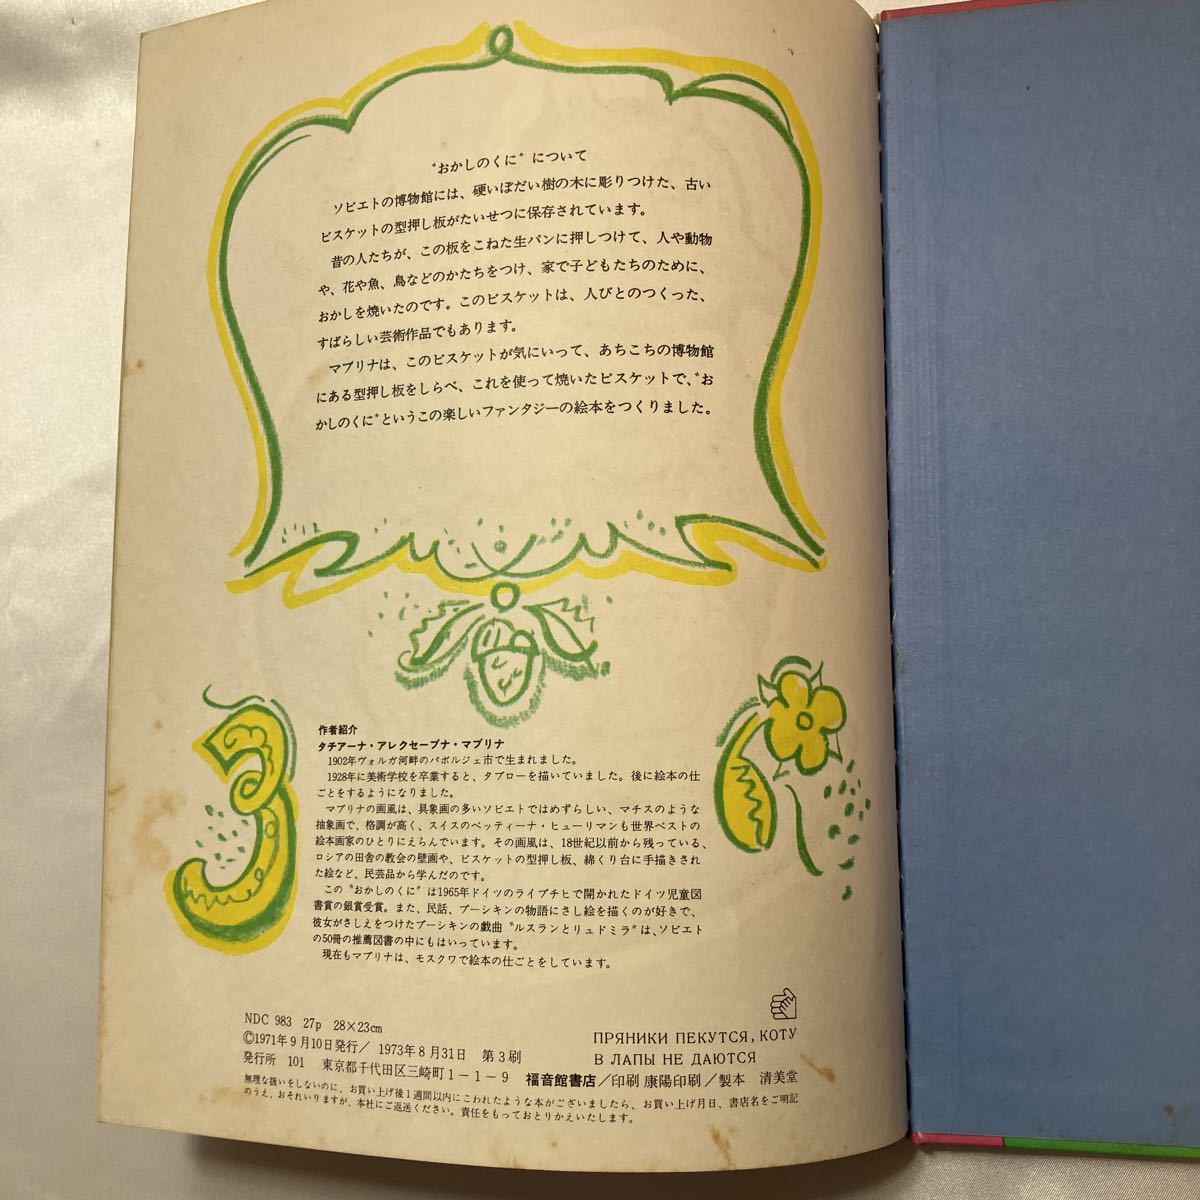 〝おかしのくに〟について
ソビエトの博物館には、硬いぼだい樹の木に彫りつけた、古い
ビスケットの型押し板がたいせつに保存されています。
昔の人たちが、この板をこねた生パンに押しつけて、人や動物
や、花や魚、鳥などのかたちをつけ、家で子どもたちのために、
おかしを焼いたのです。このビスケットは、人びとのつくった、
すばらしい芸術作品でもあります。
マブリナは、このビスケットが気にいって、あちこちの博物館
にある型押し板をしらべ、これを使って焼いたビスケットで、〝お
かしのくに〟というこの楽しいファンタジーの絵本をつくりました。
作者紹介
タチアーナ・アレクセーブナ・マブリナ
1902年ヴォルガ河畔のパボルジェ市で生まれました。
1928年に美術学校を卒業すると、タブローを描いていました。後に絵本の仕
ごとをするようになりました。
マブリナの画風は、具象画の多いソビエトではめずらしい、マチスのような
抽象画で、格調が高く、スイスのベッティーナ・ヒューリマンも世界ベストの
絵本画家のひとりにえらんでいます。その画風は、18世紀以前から残っている、
ロシアの田舎の教会の壁画や、ビスケットの型押し板、綿くり台に手描きされ
た絵など、民芸品から学んだのです。
この〝おかしのくに〟は1965年ドイツのライプチヒで開かれたドイツ児童図
書賞の銀賞受賞。また、民話、プーシキンの物語にさし絵を描くのが好きで、
彼女がさしえをつけたプーシキンの戯曲〝ルスランとリュドミラ〟は、ソビエト
の50冊の推薦図書の中にもはいっています。
現在もマブリナは、モスクワで絵本の仕ごとをしています。
NDC 983 27p 28×23cm
©1971年9月10日発行／1973年8月31日 第3刷
発行所 101 東京都千代田区三崎町1－1－9 福音館書店／印刷 康陽印刷／製本 清美堂
ПРЯНИКИ ПЕКУТСЯ, КОТУ
В ЛАПЫ НЕ ДАЮТСЯ
無理な扱いをしないのに、お買い上げ後1週間以内にこわれたような本がございましたら、お買い上げ月日、書店名をご明記
のうえ、おそれいりますが、本社にご返送ください。責任をもっておとりかえいたします。